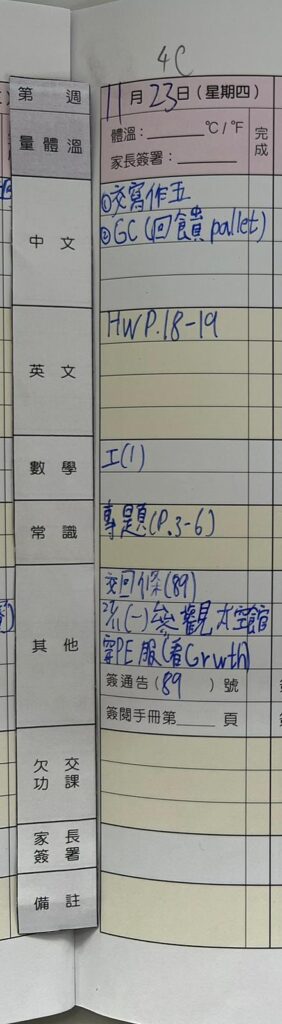 4C
第 週
11月23日(星期四)
量體溫
體溫：______℃/℉
家長簽署：______
完成
中文
①交寫作五
②GC(回饋pallet)
英文
HWP.18-19
數學
工(1)
常識
專題(P.3-6)
其他
交回條(89)
(一)參觀太空館
穿PE服(看Grwth)
簽通告(89 )號
簽閱手冊第____頁
欠交功課
家長簽署
備註